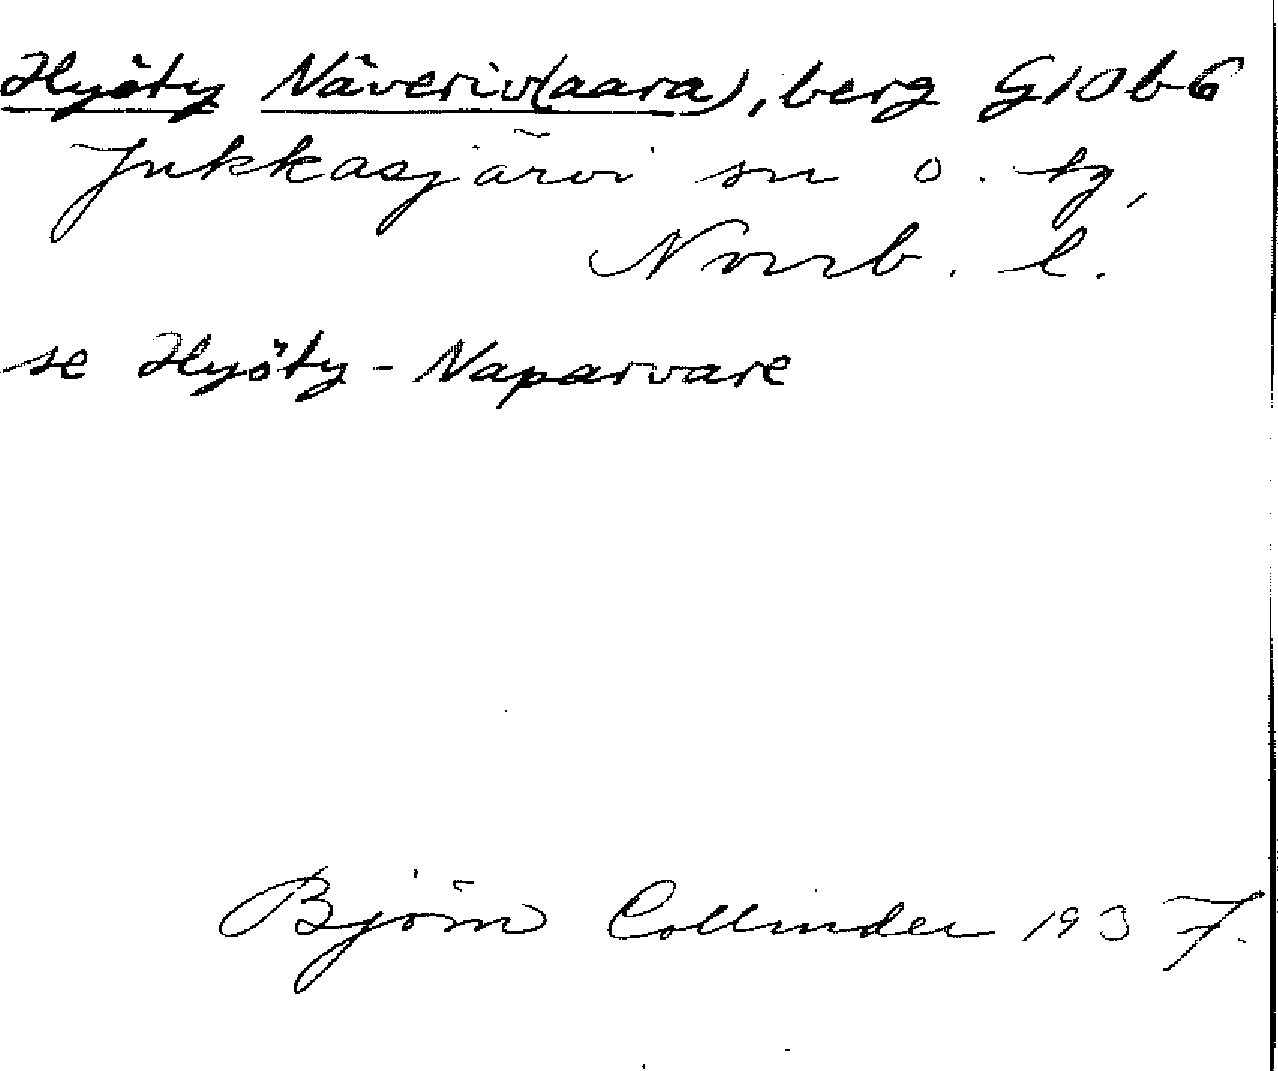 Hyöty Näveriv(aara), berg G10b6
Jukkasjärvi sn o. tg,
Norrb. l.
se Hyöty-Naparvare
Björn Collinder 1937.